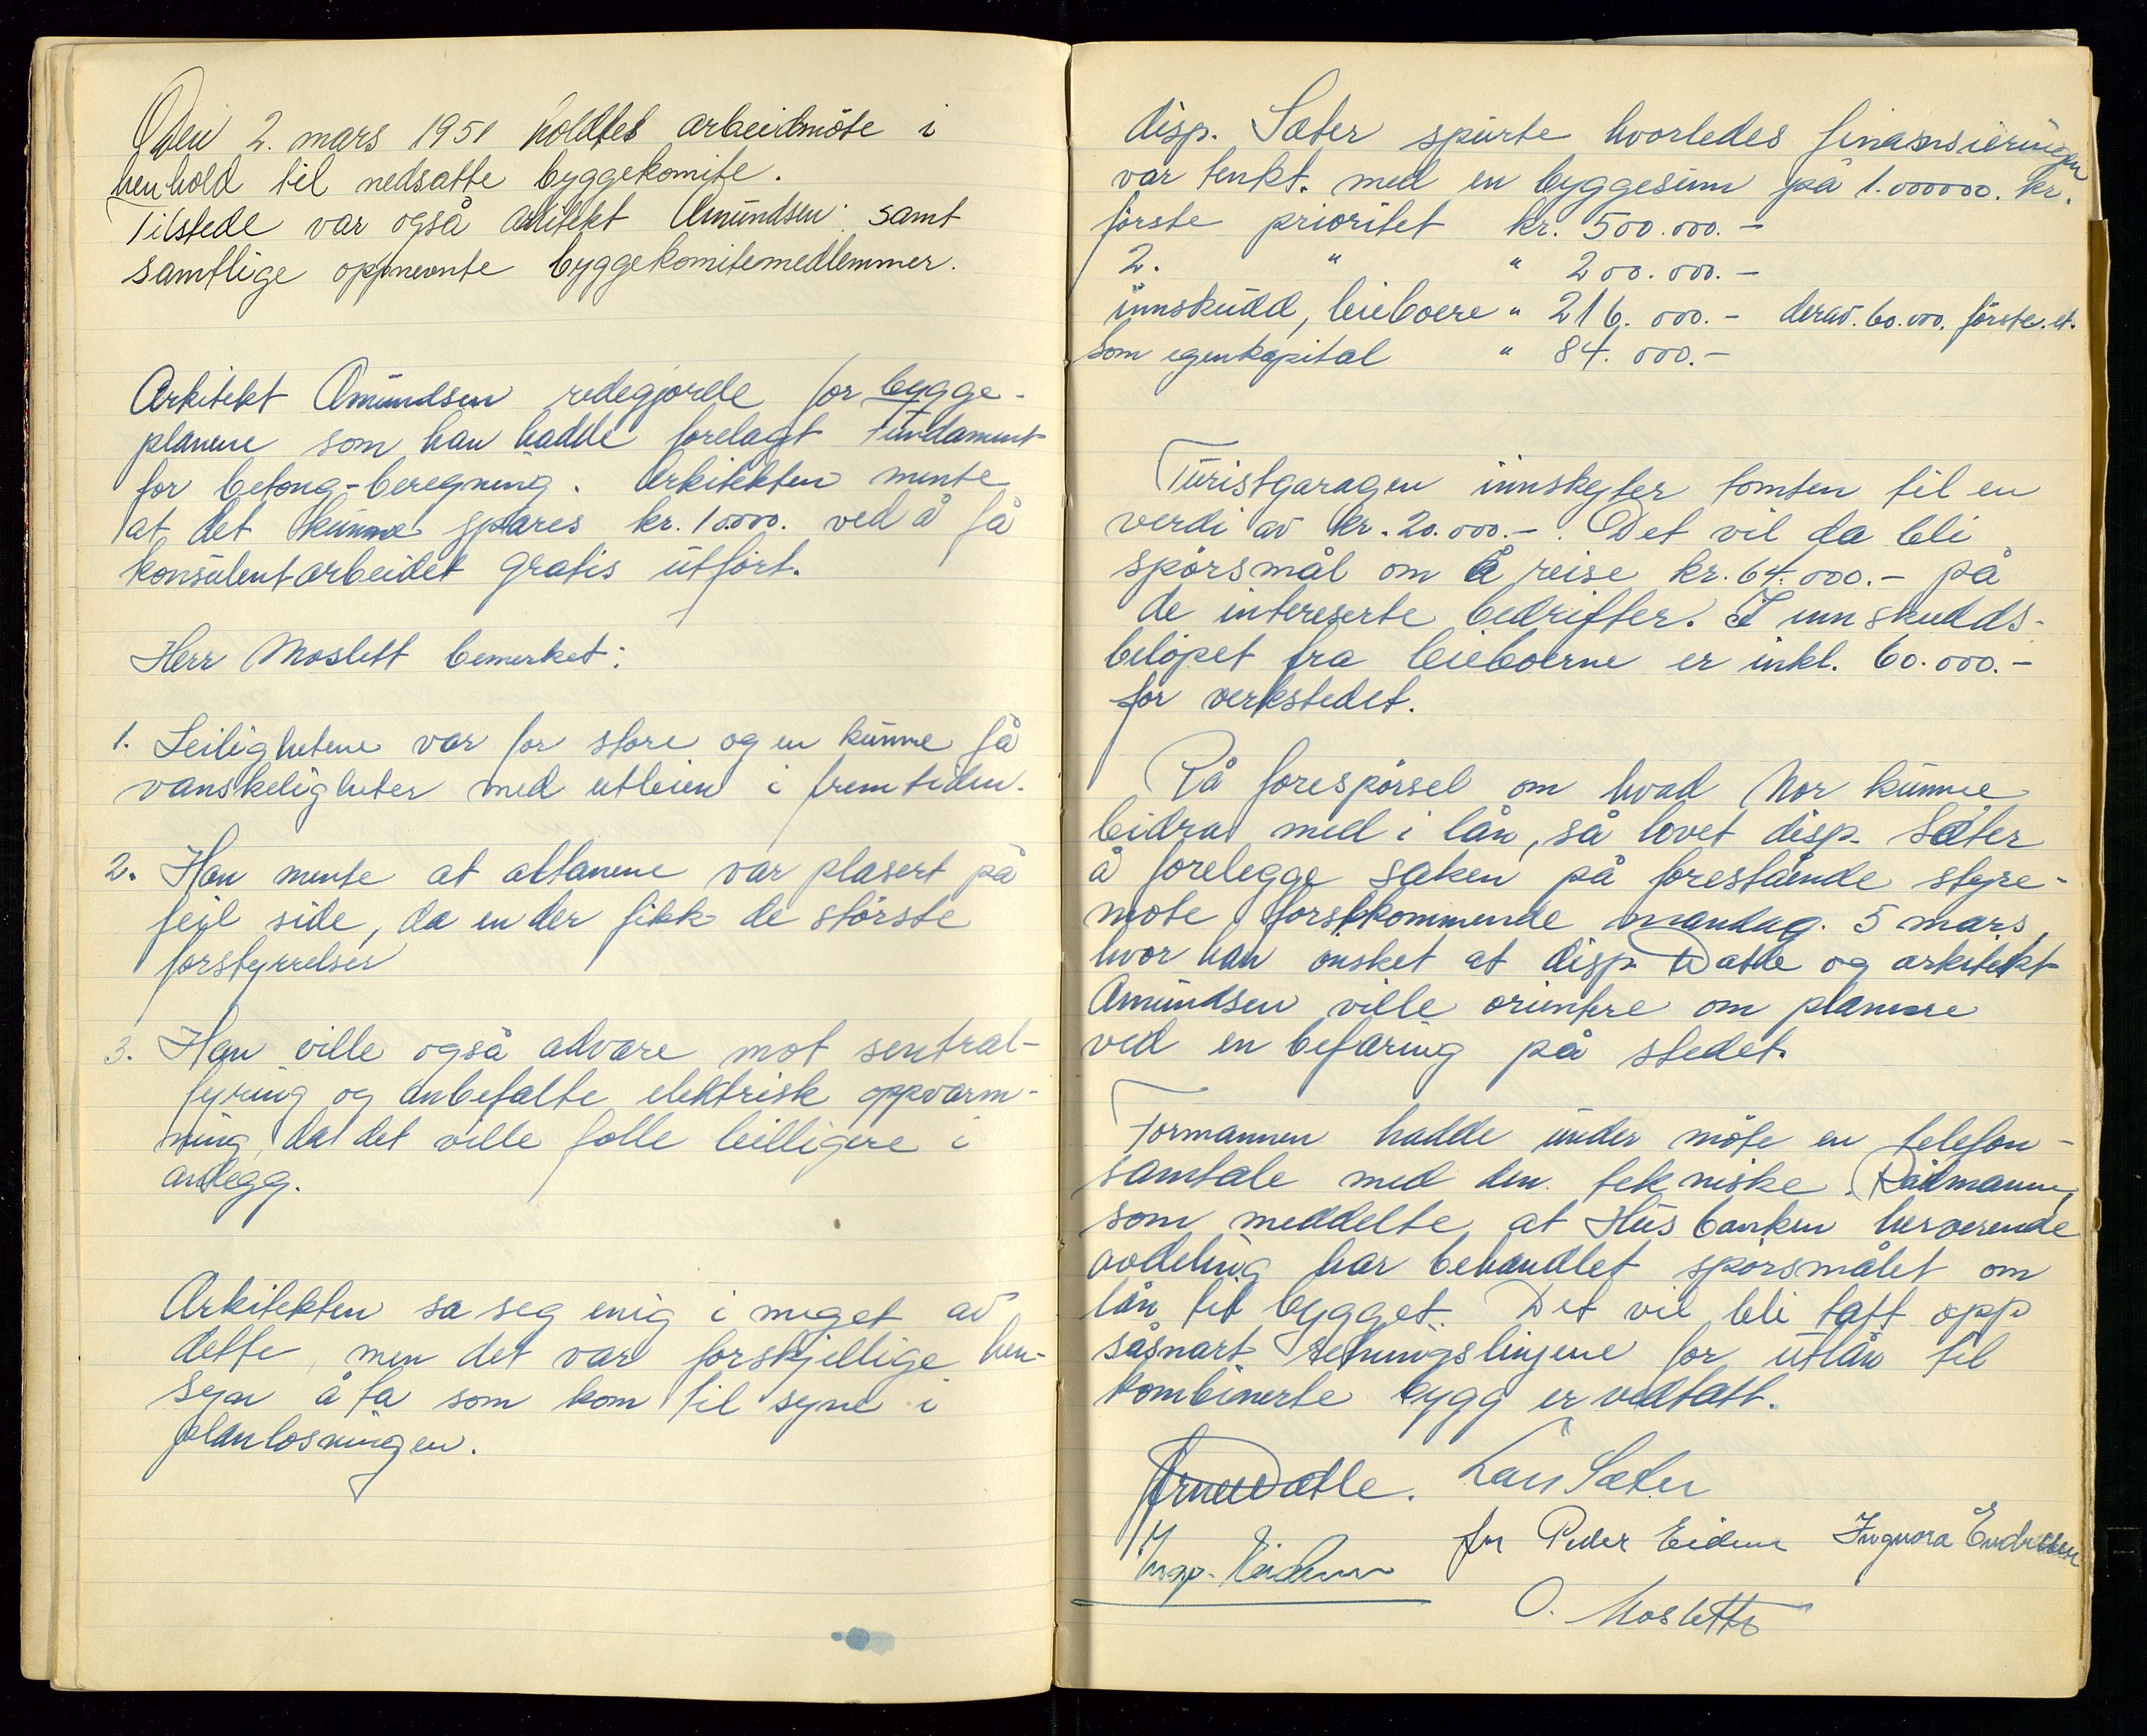 Den 2. mars 1951 holdtes arbeidmöte i
henhold til nedsatte byggekomite.
Tilstede var også arkitekt Amundsen samt
samtlige oppnevnte byggekomitemedlemmer.
Arkitekt Amundsen redegjorde for bygge-
planene som han hadde forelagt Fundament
for betong-beregning. Arkitekten mente
at det kunne spares kr. 10.000. ved å få
konsulentarbeidet gratis utfört.
Herr Moslett bemerket:
1. Leilighetene var for store og en kunne få
vanskeligheter med utleien i fremtiden.
2. Han mente at altanene var plasert på
feil side, da en der fikk de störste
forstyrrelser
3. Han ville også advare mot sentral-
fyring og anbefalte elektrisk oppvarm-
ning, da det ville falle billigere i
anlegg.
Arkitekten sa seg enig i meget av
dette, men det var forskjellige hen-
syn å ta som kom til syne i
planlosningen.
disp. Sæter spurte hvorledes finansieringen
var tenkt. med en byggesum på 1.000000. kr.
förste prioritet kr. 500.000.-
2. " " 200.000.-
innskudd, leieboere " 216.000.- derav. 60.000. förste.et.
som egenkapital " 84.000.-
Turistgaragen innskyter tomten til en
verdi av kr. 20.000.-. Det vil da bli
spörsmål om å reise kr. 64.000.- på
de intereserte bedrifter. I innskudds-
belöpet fra leieboerne er inkl. 60.000.-
for verkstedet.
På forespörsel om hvad Nor kunne
bidra med i lån, så lovet disp. Sæter
å forelegge saken på forestående styre-
mote förstkommende mandag. 5 mars,
hvor han önsket at disp. Datle og arkitekt
Amundsen ville orientere om planene
ved en befaring på stedet.
Formannen hadde under möte en telefon-
samtale med den tekniske Rådmann,
som meddelte at Husbanken herværende
avdeling har behandlet spörsmålet om
lån til bygget. Det vil bli tatt opp
såsnart retningslinjene for utlån til
kombinerte bygg er vedtatt.
Arne Datle. Lars Sæter
for Peder Eidene Ingvora Endresen
O. Moslett